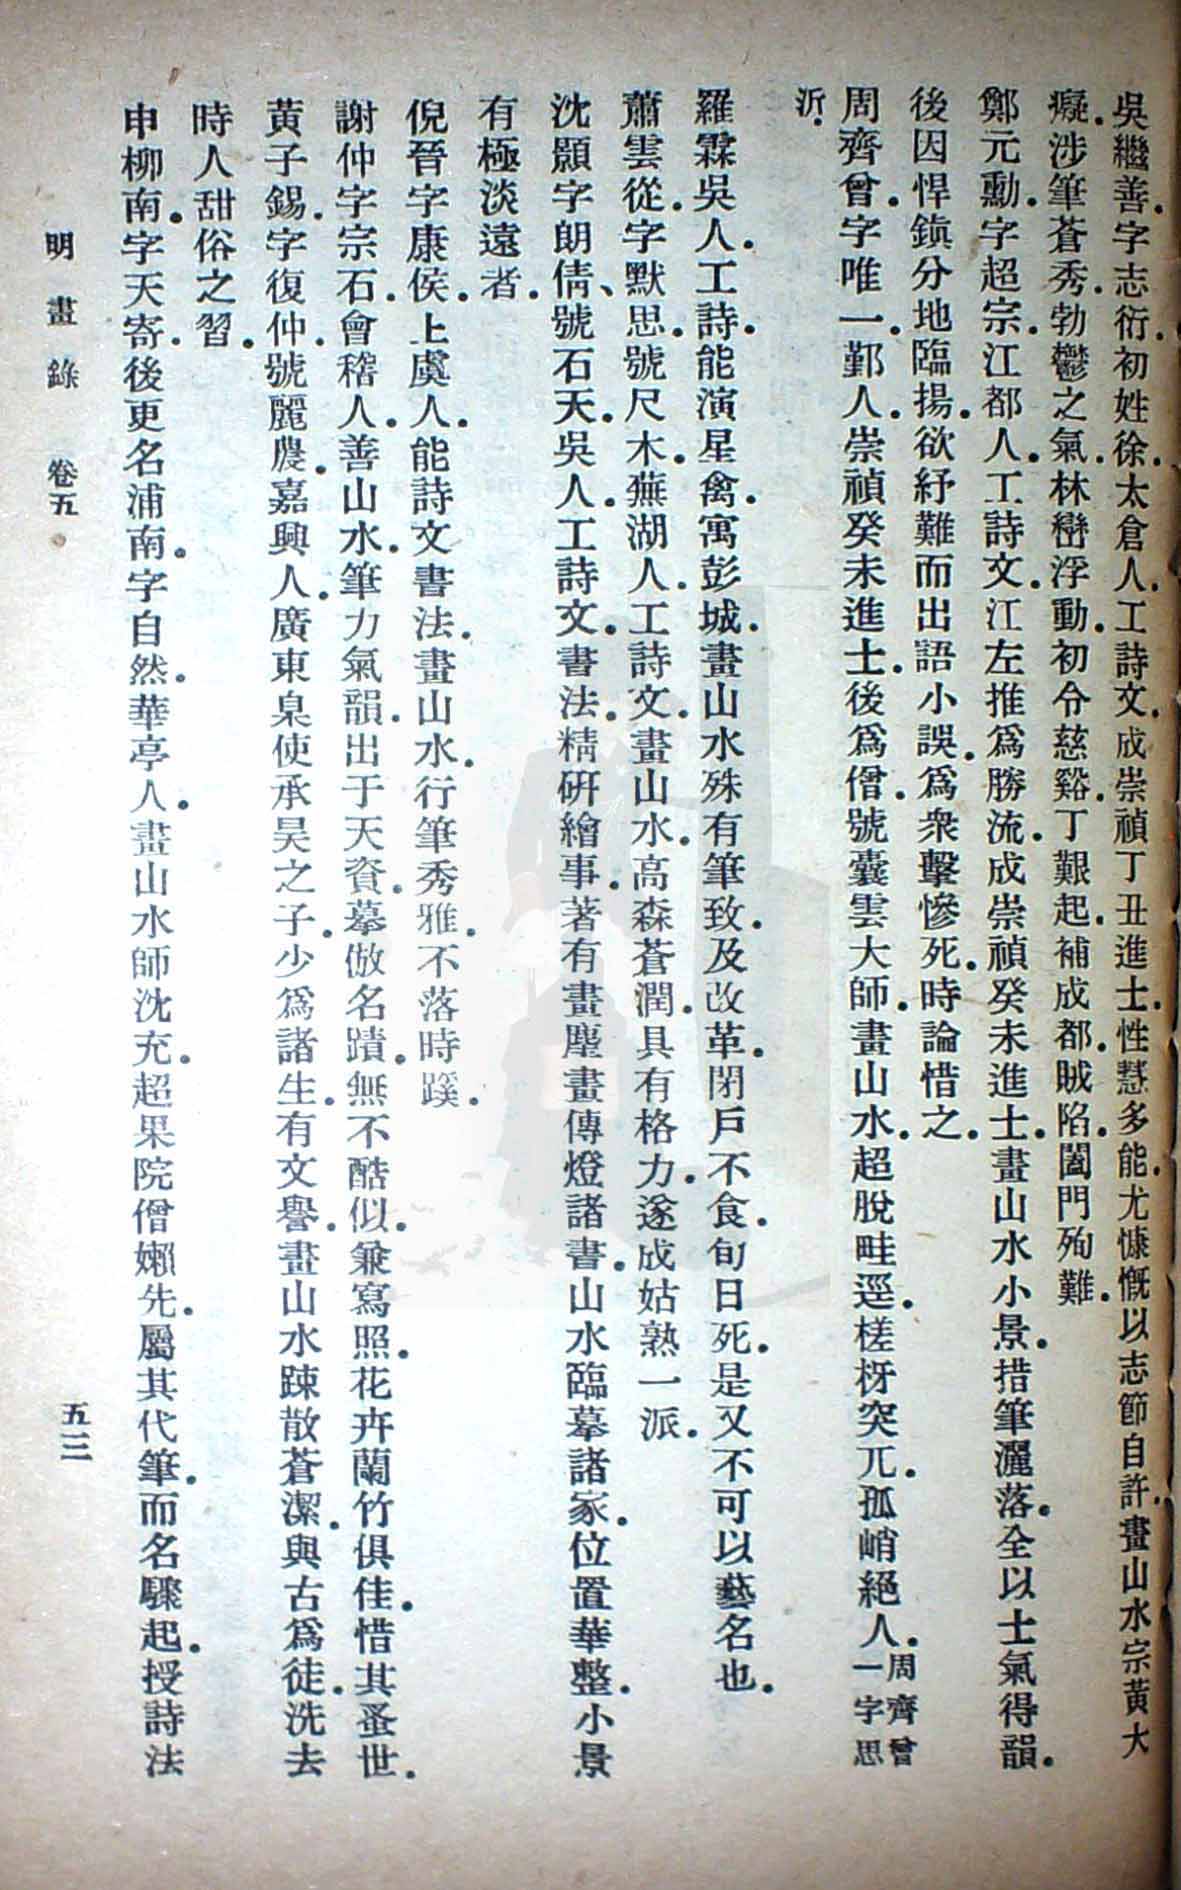 吳繼善.字志衍.初姓徐.太倉人.工詩文.成崇禎丁丑進士.性慧多能.尤慷慨以志節自許.畫山水宗黃大
癡.涉筆蒼秀.勃鬱之氣.林巒浮動.初令慈谿.丁艱起補成都.賊陷.闔門殉難.
鄭元勳.字超宗.江都人.工詩文.江左推為勝流.成崇禎癸未進士.畫山水小景.措筆灑落.全以士氣得韻.
後因悍鎮分地臨揚.欲紓難而出語小誤.為衆擊慘死.時論惜之.
周齊曾.字唯一.鄞人.崇禎癸未進士.後為僧.號囊雲大師.畫山水.超脫畦逕.槎枒突兀.孤峭絕人.周齊曾一字思
沂.
羅霖吳人.工詩.能演星禽.寓彭城.畫山水殊有筆致.及改革.閉戶不食.旬日死.是又不可以藝名也.
蕭雲從.字默思.號尺木.蕪湖人.工詩文.畫山水.高森蒼潤.具有格力.遂成姑熟一派.
沈顥字朗倩、號石天.吳人.工詩文.書法.精研繪事.著有畫塵畫傳燈諸書.山水臨摹諸家.位置華整.小景
有極淡遠者.
倪晉字康侯.上虞人.能詩文書法.畫山水.行筆秀雅.不落時蹊.
謝仲字宗石.會稽人.善山水.筆力氣韻.出于天資.摹倣名蹟.無不酷似.兼寫照.花卉蘭竹俱佳.惜其蚤世.
黃子錫.字復仲.號麗農.嘉興人.廣東臬使承昊之子.少為諸生.有文譽.畫山水踈散蒼潔.與古為徒.洗去
時人甜俗之習.
申柳南.字天寄.後更名浦南.字自然.華亭人.畫山水師沈充.超果院僧嬾先.屬其代筆.而名驟起.授詩法
明畫錄 卷五 五三